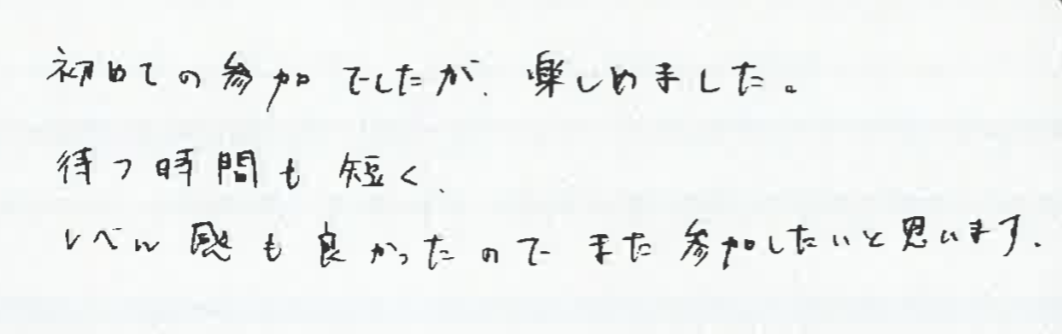 初めての参加でしたが、楽しめました。
待つ時間も短く、
レベル感も良かったのでまた参加したいと思います.